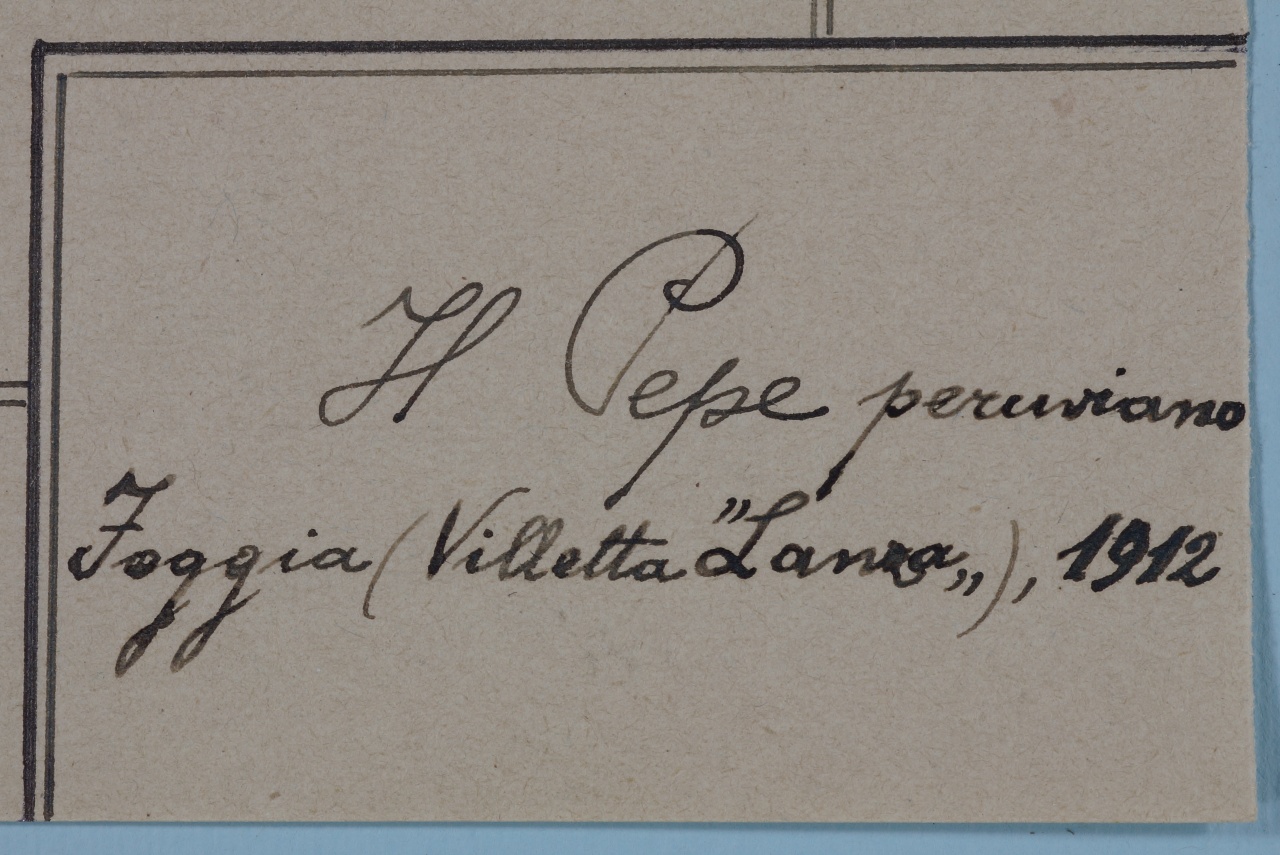 Il Pepe peruviano
Foggia (Villetta "Lanza„), 1912